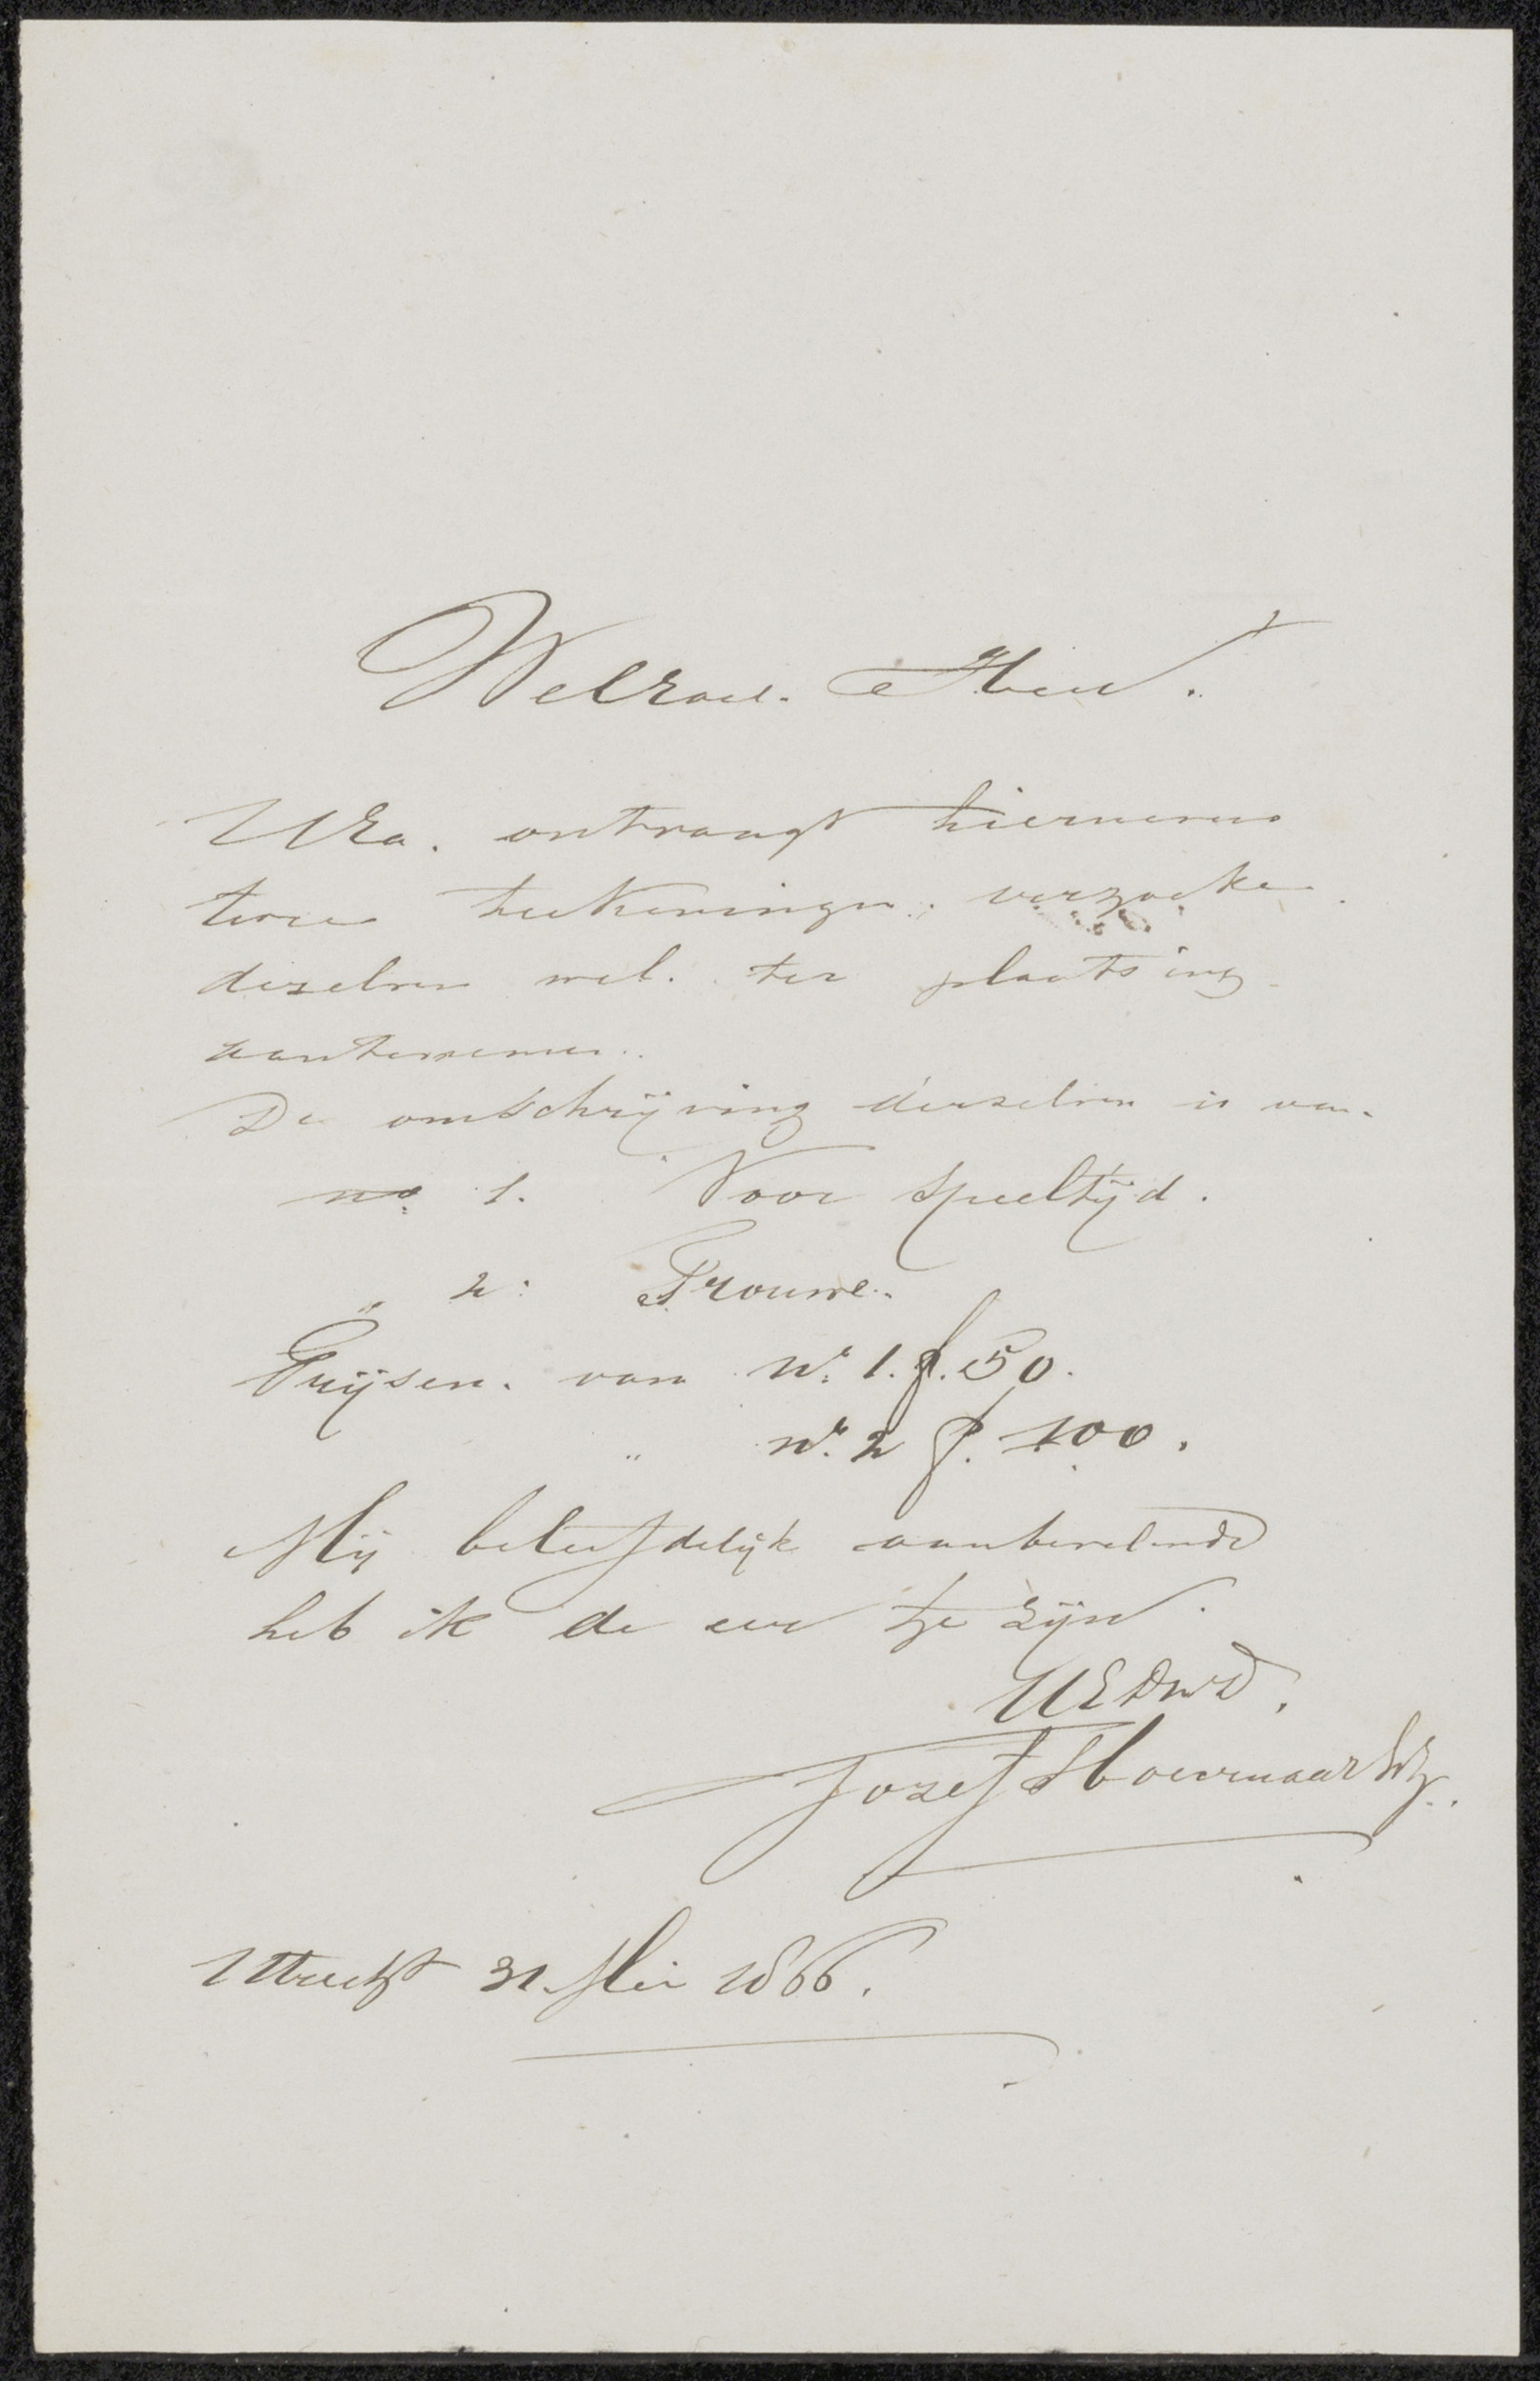 WelEdel. Heer.
UEd. ontvangt hiernevens
twee teekeningen, verzoeke
dezelven wel. ter plaatsing
aantenemen.
De omschrijving derzelven is van.
no 1. Voor speeltijd.
„ 2: Trouwe.
Prijsen. van No. 1. f. 50.
„ No. 2 f. 100.
Mij beleefdelijk aanbevelende
heb ik de eer te zijn
UEDWD.
Jozef Hoevenaar WZ.
Utrecht 31 Mei 1866.